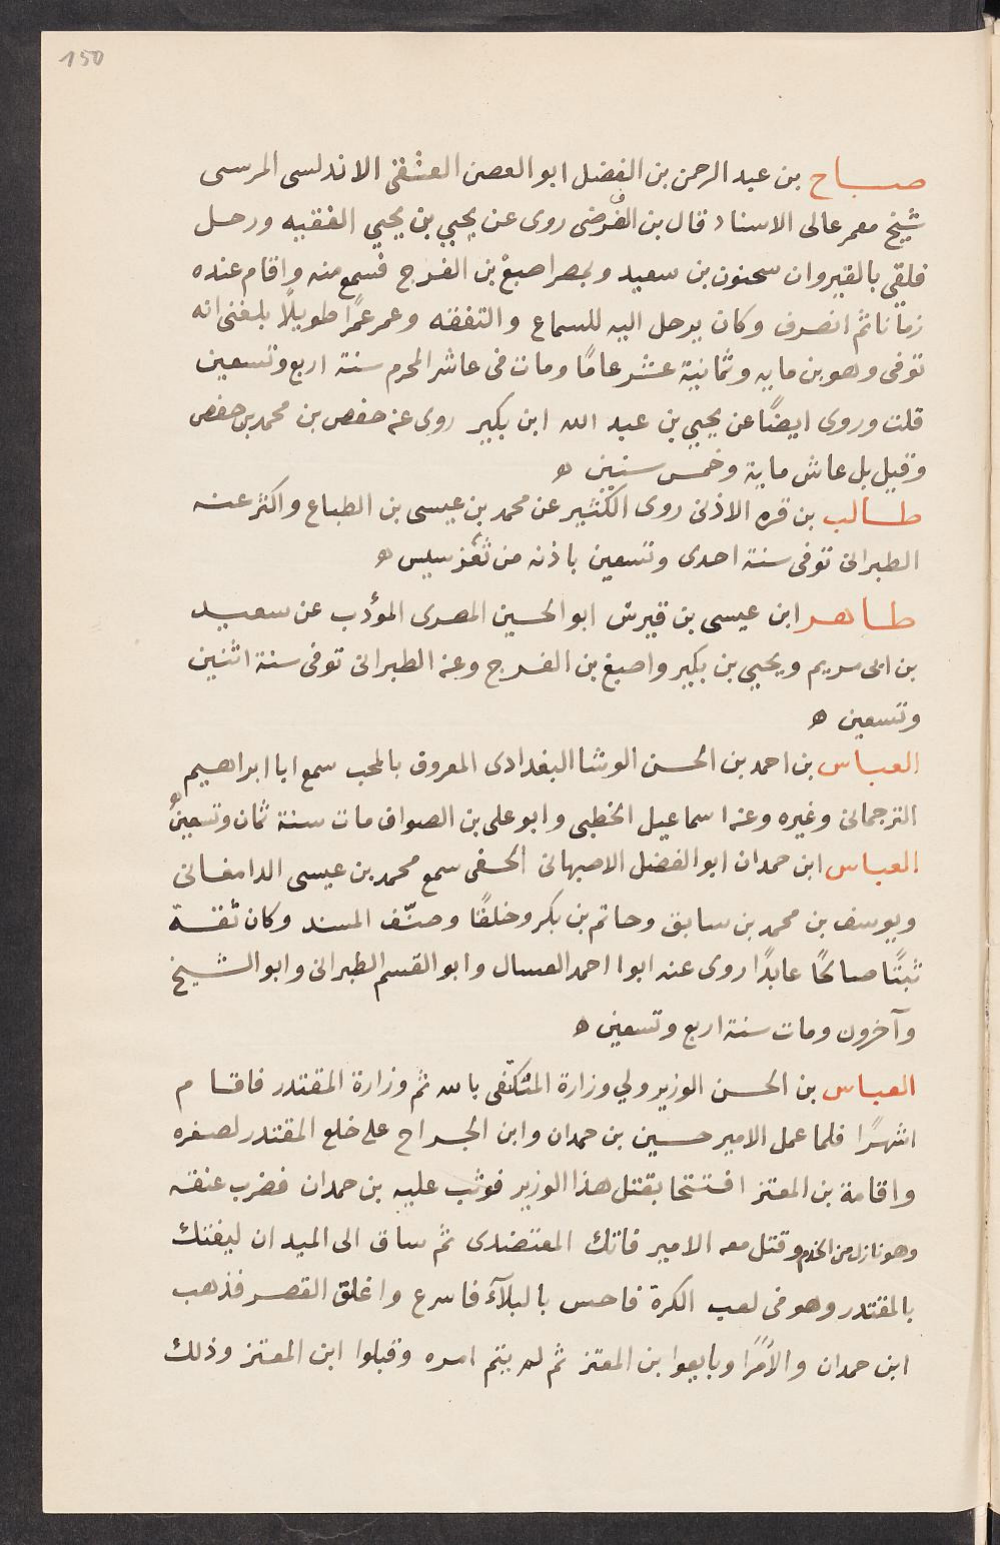 150
صباح بن عبد الرحمن بن الفضل ابو الغصن العشقى الاندلسى المرسى
شيخ معمر عالى الاسناد قال بن الفرضى روى عن يحيي بن يحيي الفقيه ورحل
فلقي بالقيروان سحنون بن سعيد وبمصر اصبغ بن الفرج فسمع منه واقام عنده
زمانا ثم انصرف وكان يرحل اليه للسماع والتفقه وعمر عمرًا طويلًا بلغنى انه
توفى وهو بن مايه وثمانية عشر عامًا ومات فى عاشر المحرم سنة اربع وتسعين
قلت وروى ايضًا عن يحيي بن عبد الله ابن بكير روى عنه حفص بن محمد بن حفص
وقيل بل عاش ماية وخمس سنين ه
طالب بن قره الاذنى روى الكثير عن محمد بن عيسى بن الطباع واكثر عنه
الطبرانى توفى سنة احدى وتسعين باذنه من ثغز سيس ه
طاهر ابن عيسى بن قيرش ابو الحسين المصرى المؤدب عن سعيد
بن ابى مريم ويحيي بن بكير واصبغ بن الفرج وعنه الطبرانى توفى سنة اثنين
وتسعين ه
العباس بن احمد بن الحسن الوشا البغدادى المعروف بالمحب سمع ابا ابراهيم
الترجمانى وغيره وعنه اسماعيل الخطبى وابو على بن الصواف مات سنة ثمان وتسعين ه
العباس ابن حمدان ابو الفضل الاصبهانى الحنفى سمع محمد بن عيسى الدامغانى
ويوسف بن محمد بن سابق وحاتم بن بكر وخلقًا وصنّف المسند وكان ثقة
ثبتًا صالحًا عابدًا روى عنه ابوا احمد العسال وابو القسم الطبرانى وابو الشيخ
وآخرون ومات سنة اربع وتسعين ه
العباس بن الحسن الوزير ولي وزارة المتكفى بالله ثم وزارة المقتدر فاقام
اشهرًا فلما عمل الامير حسين بن حمدان وابن الجراح على خلع المقتدر لصغره
واقامة بن المعتز افتتحا بقتل هذا الوزير فوثب عليه بن حمدان فضرب عنقه
وهو نازل من الخدم وقتل معه الامير فاتك المعتضدى ثم ساق الى الميدان ليفتك
بالمقتدر وهو فى لعب الكرة فاحس بالبلآء فاسرع واغلق القصر فذهب
ابن حمدان والأمرا وبايعوا بن المعتز ثم لم يتم امره وقبلوا ابن المعتز وذلك